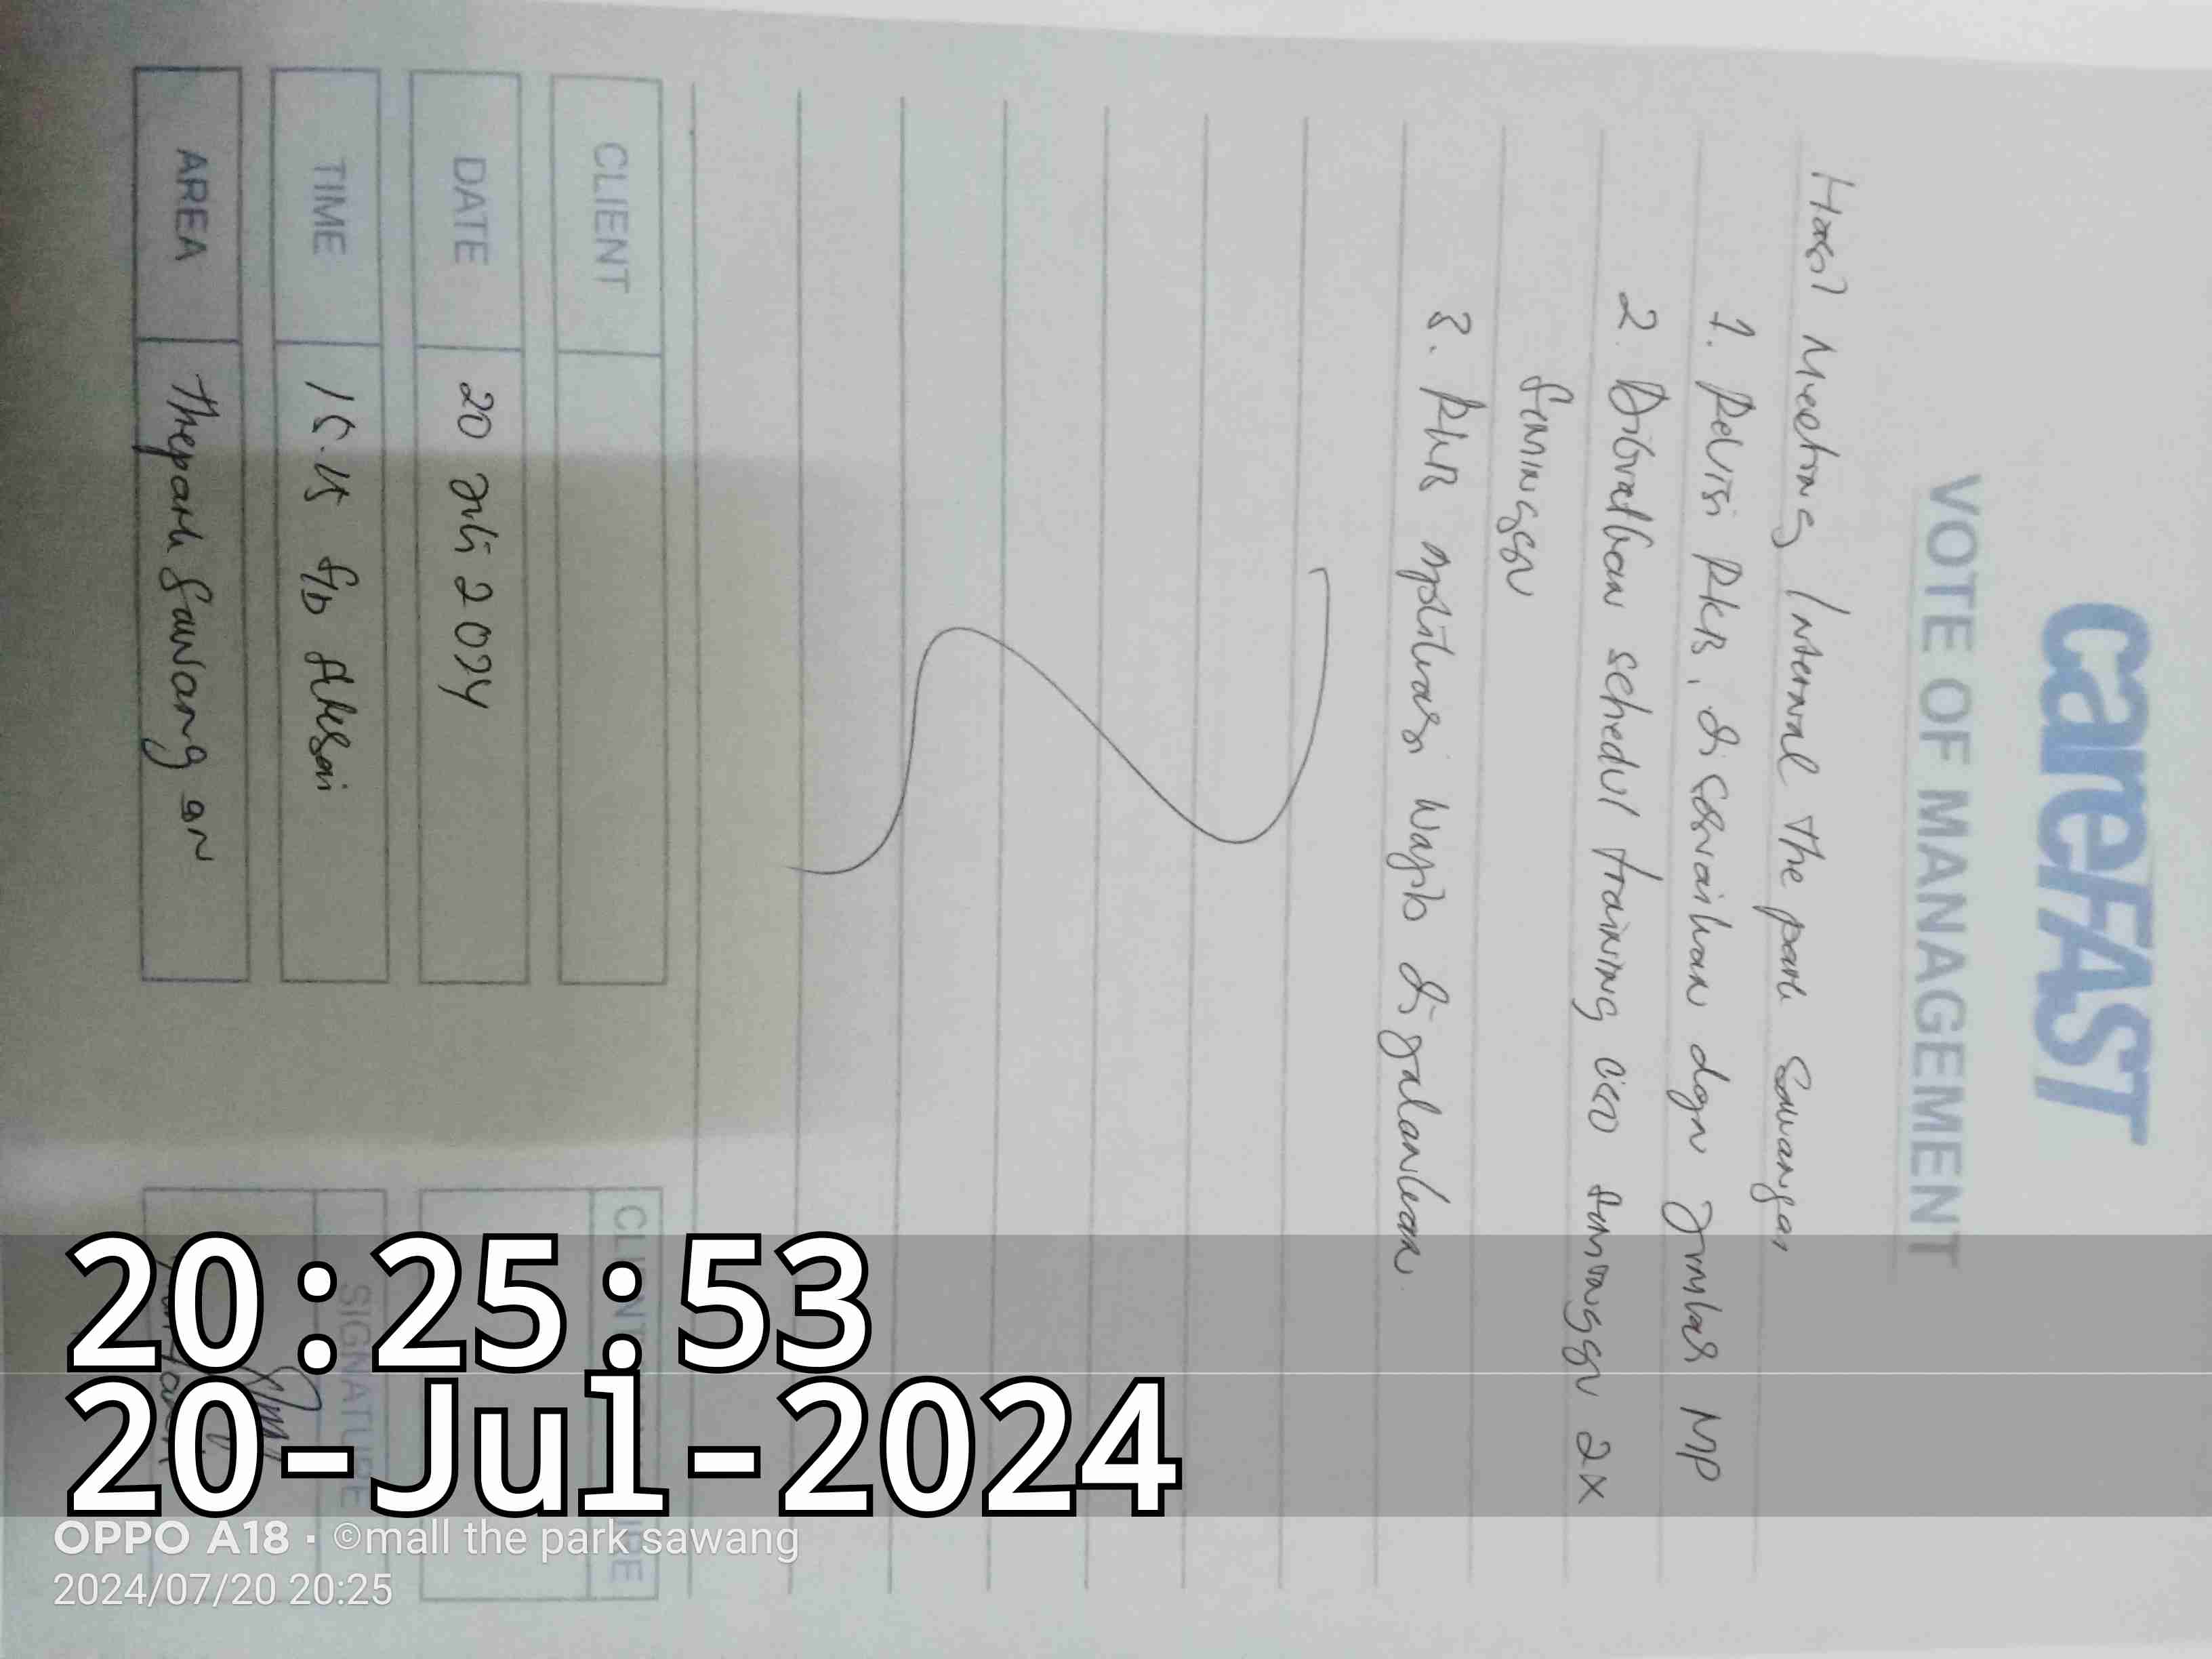 careFAST
VOTE OF MANAGEMENT
Hasil Meeting Internal The park Sawangan
1. Revisi RKB, di sesuaikan dgn Jumlah MP
2. Dibuatkan schedul training
seminggu 2x
seminggu
3. RKB wajib di jalankan.
CLIENT
DATE 20 Juli 2024
TIME 15.15 s/d selesai
AREA Thepark Sawangan
SIGNATURE
20:25:53
20-Jul-2024
OPPO A18 · ©mall the park sawang
2024/07/20 20:25